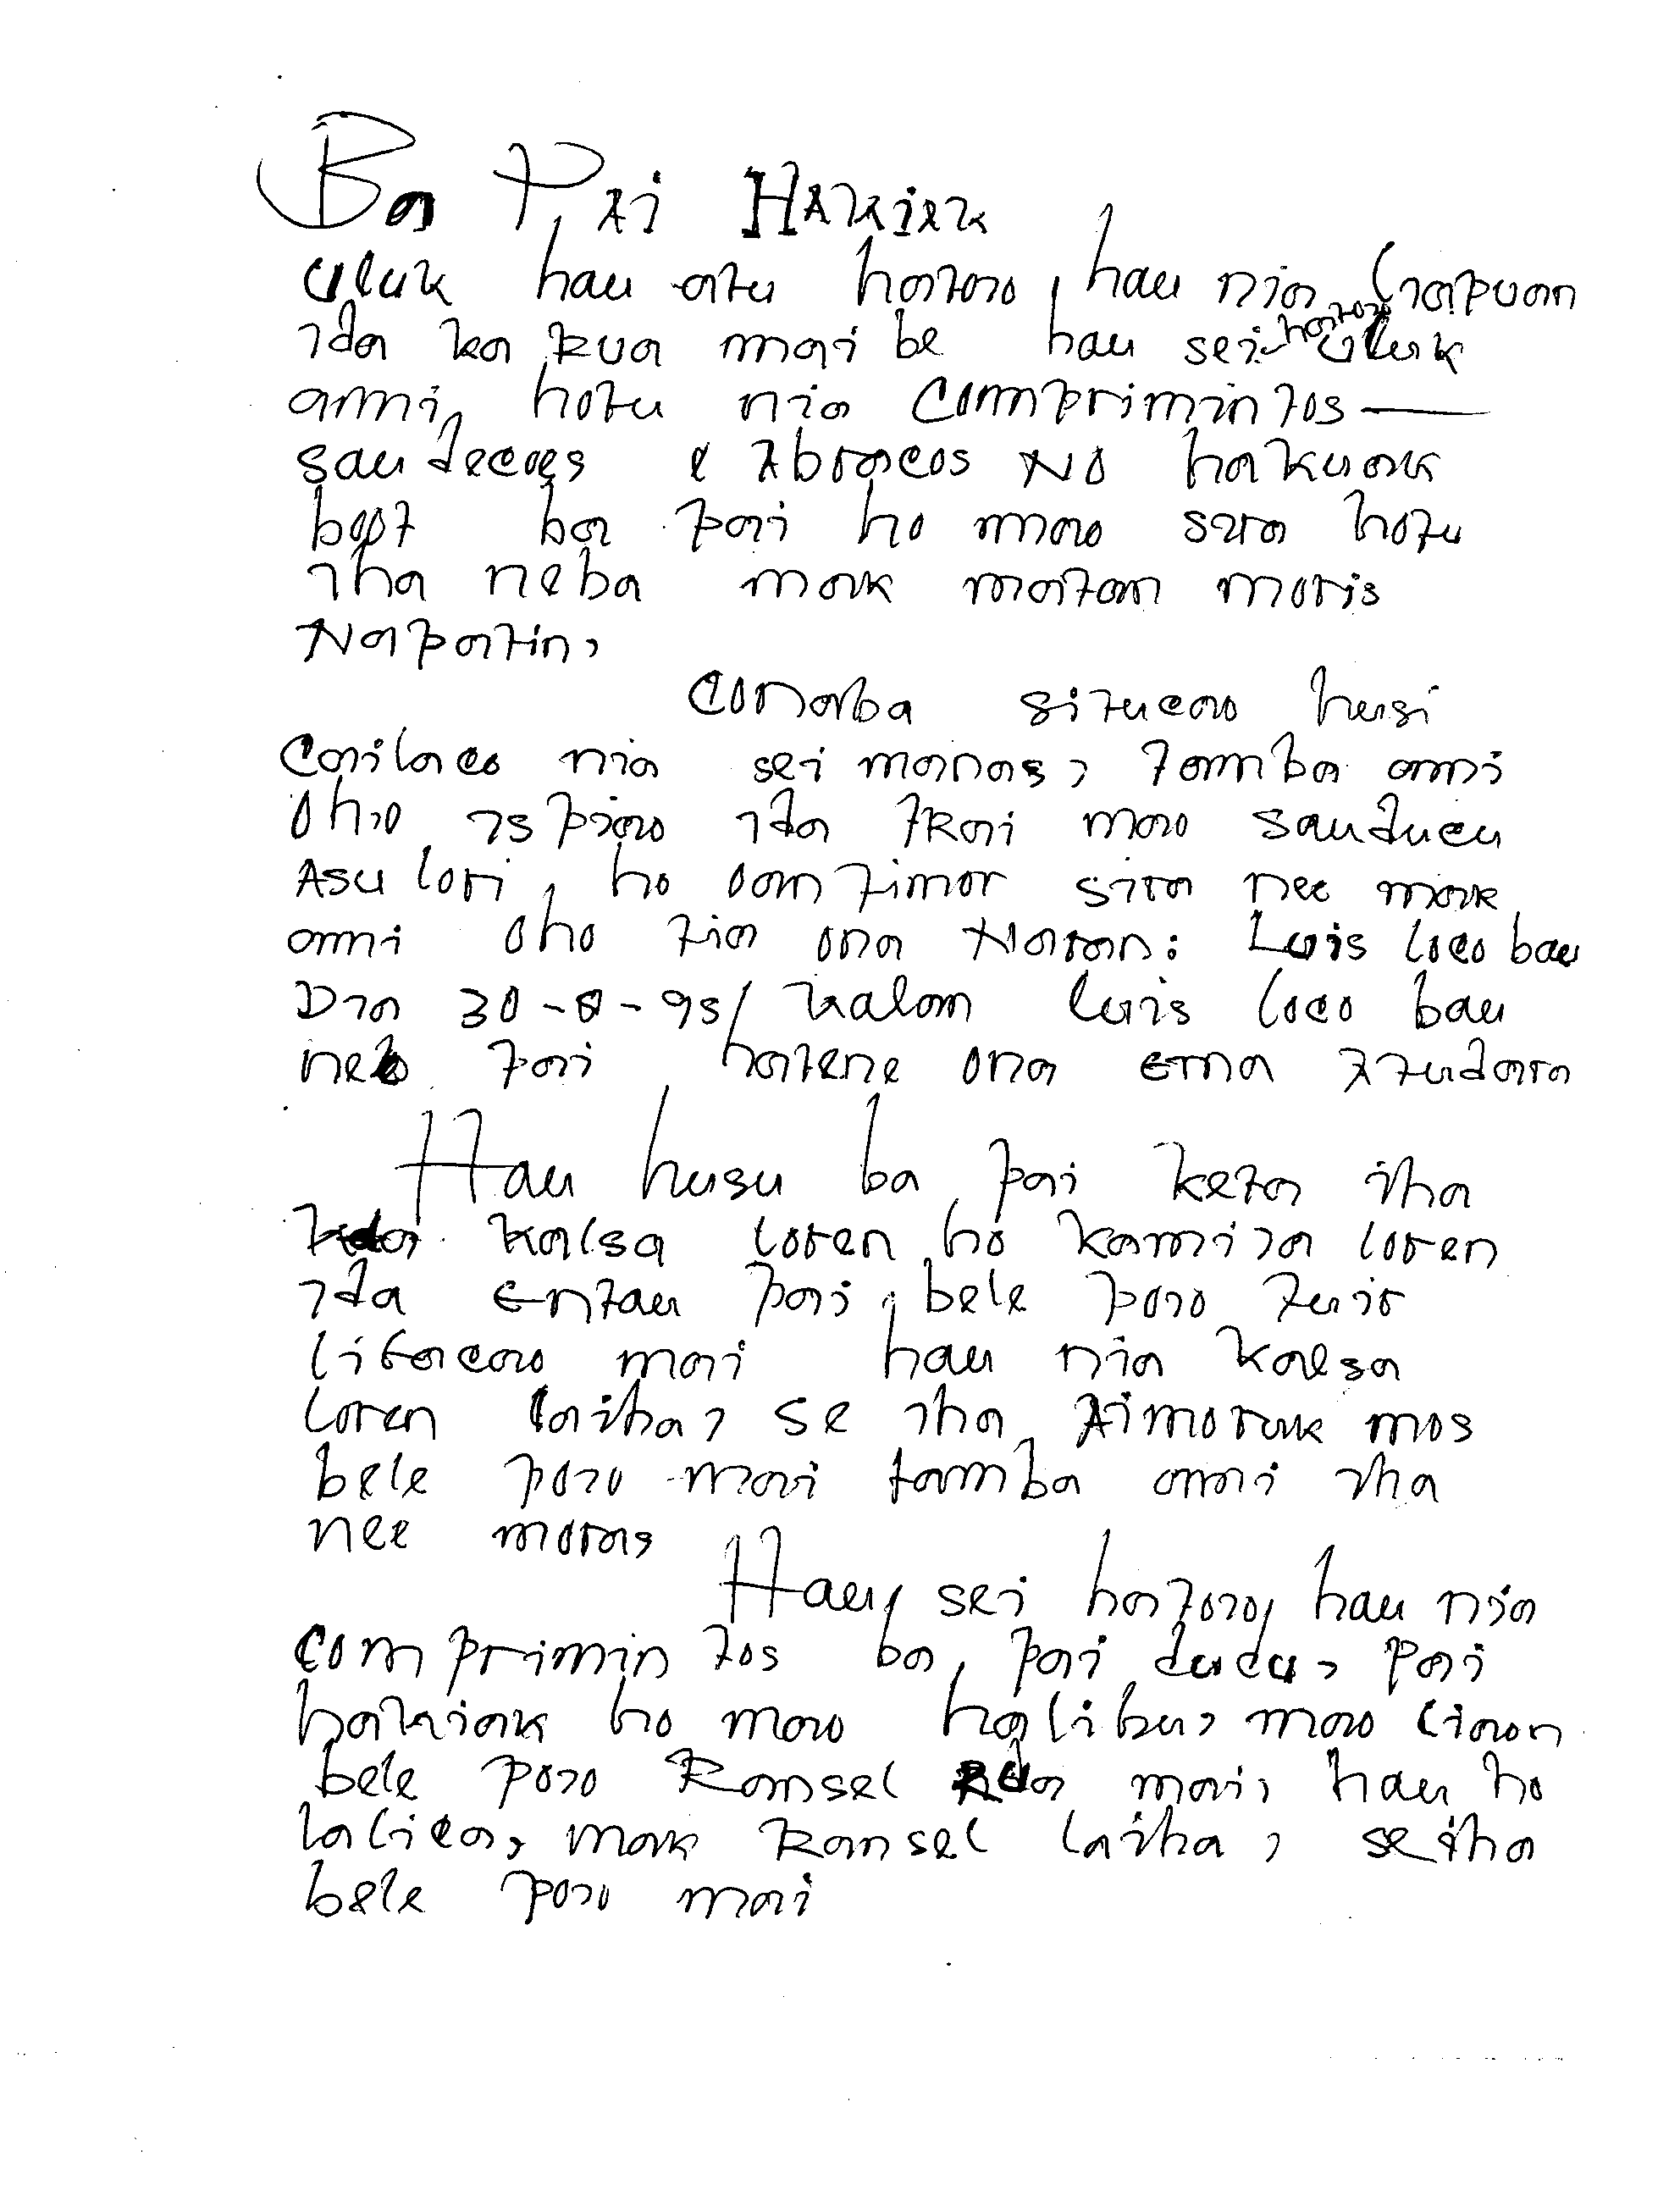 Ba Pai HAKiAk
Uluk hau atu hatoo, hau nia liafuan
ida ka Rua mai be hau sei hatoo Uluk
ami hotu nia Comprimintos —
saudecoes e Abracos No hakuak
boot ba Pai ho mao sira hotu
iha neba mak matan moris
Nafatin,
Conaba situcao husi
Cailaco nia sei manas, tamba ami
Oho ispiao ida Rai mao sauducu
Asu lori, ho oan timor sira nee mak
ami Oho tia ona Naran: Luis loco bau
Dia 30-8-95/ Kalan luis loco bau
neb Pai hatene ona Ema Atudara
Hau husu ba Pai keta iha
kalsa loren ho kamiza loren
ida Entau Pai bele Poio tuir
lifacao mai hau nia kalsa
loren laiha, se iha Aimoruk mos
bele Poio mai tamba ami iha
nee moras
Hau sei hatoo, hau nia
Comprimintos ba Pai dudu, Pai
hakiak ho mao halibur, mao liaon
bele Poio Ransel Rua mai, hau ho
lalica, mak Ransel laiha, se iha
bele Poio mai